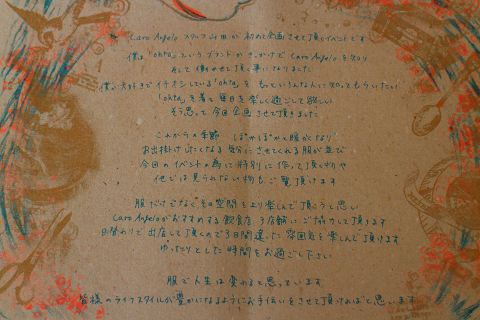 Caro Angelo スタッフ 山田が 初めて企画させて頂くイベントです
僕は「ohta」というブランドがきっかけで Caro Angelo を知り
そして働かせて頂く事になりました
僕が大好きでイチオシしている「ohta」を もっといろんな人に知ってもらいたい
「ohta」を着て毎日を楽しく過ごして欲しい
そう思って今回企画させて頂きました
これからの季節 ぽかぽかと暖かくなり
お出掛けしたくなる気分にさせてくれる服が並び
今回のイベントの為に特別に作って頂く物や
他では見られない物もご覧頂けます
服だけでなくその空間をより楽しんで頂こうと思い
Caro Angeloがおすすめする飲食店 3店舗にご協力して頂きます
日替わりで出店して頂くので3日間違った雰囲気を楽しんで頂けます
ゆったりとした時間をお過ごし下さい
服で人生は変わると思っています
皆様のライフスタイルが豊かになるようにお手伝いをさせて頂ければと思います